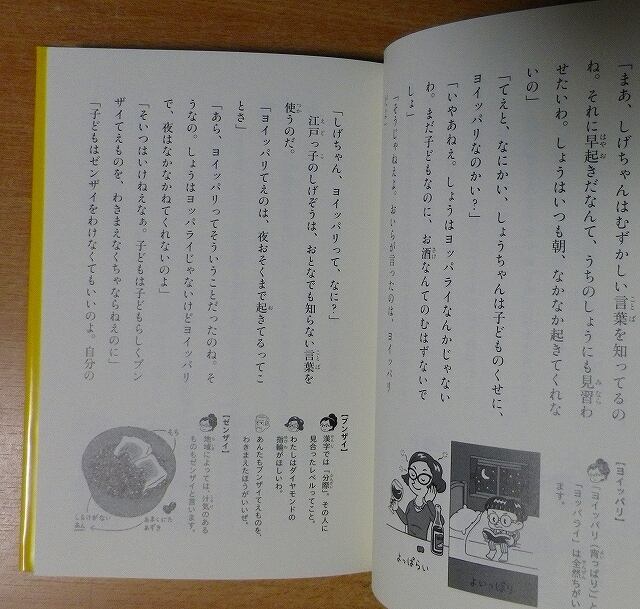 「まあ、しげちゃんはむずかしい言葉を知ってるの
ね。それに早起きだなんて、うちのしょうにも見習わ
せたいわ。しょうはいつも朝、なかなか起きてくれな
いの」
「てえと、なにかい、しょうちゃんは子どものくせに、
ヨイッパリなのかい？」
「いやあねえ。しょうはヨッパライなんかじゃない
わ。まだ子どもなのに、お酒なんてのむはずないで
しょ」
「そうじゃねえよ。おいらが言ったのは、ヨイッパリ
【ヨイッパリ】
「ヨイッパリ（宵っぱり）」と
「ヨッパライ」は全然ちがい
ます。
よいっぱり
よっぱらい
「しげちゃん、ヨイッパリって、なに？」
江戸っ子のしげぞうは、おとなでも知らない言葉を
使うのだ。
「ヨイッパリてえのは、夜おそくまで起きてるってこ
とさ」
「あら、ヨイッパリってそういうことだったのね。そ
うなの。しょうはヨッパライじゃないけどヨイッパリ
で、夜はなかなかねてくれないのよ」
「そいつはいけねえなぁ。子どもは子どもらしくブン
ザイてえものを、わきまえなくちゃならねえのに」
「子どもはゼンザイをわけなくてもいいのよ。自分の
【ブンザイ】
漢字では「分際」。その人に
見合ったレベルってこと。
わたしはダイヤモンドの
指輪がほしいわ。
あんたもブンザイてえものを、
わきまえたほうがいいぜ。
【ゼンザイ】
地域によっては、汁気のある
ものもゼンザイと言います。
もち
あまくにた
あずき
しるけがない
あん